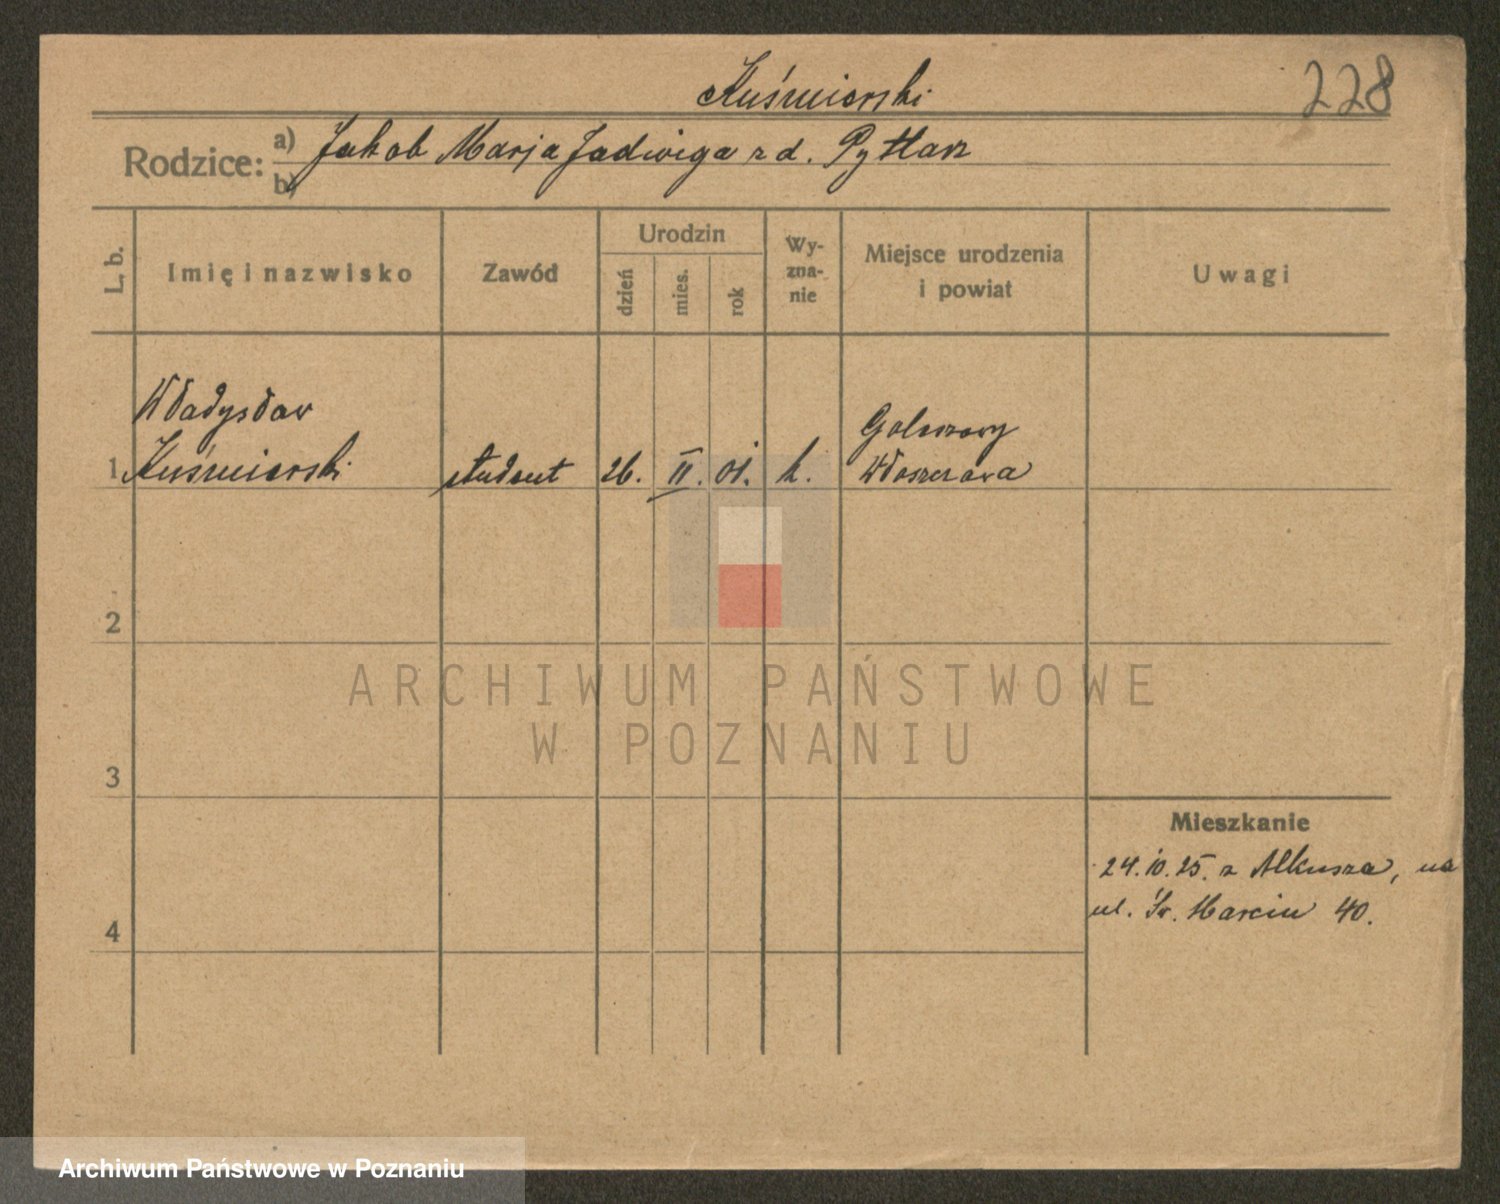 Kuśmierski 228
Rodzice: a) Jakob Marja Jadwiga z d. Pytlarz
b)
L. b. Imię i nazwisko Zawód Urodzin dzień mies. rok Wyznanie Miejsce urodzenia i powiat Uwagi
Władysław
1 Kuśmierski student 26. II. 01. k.
Włoszczowa
2
ARCHIWUM PAŃSTWOWE
W POZNANIU
3
Mieszkanie
24.10.25. z Olkusza, na
ul. Św. Marcin 40.
4
Archiwum Państwowe w Poznaniu